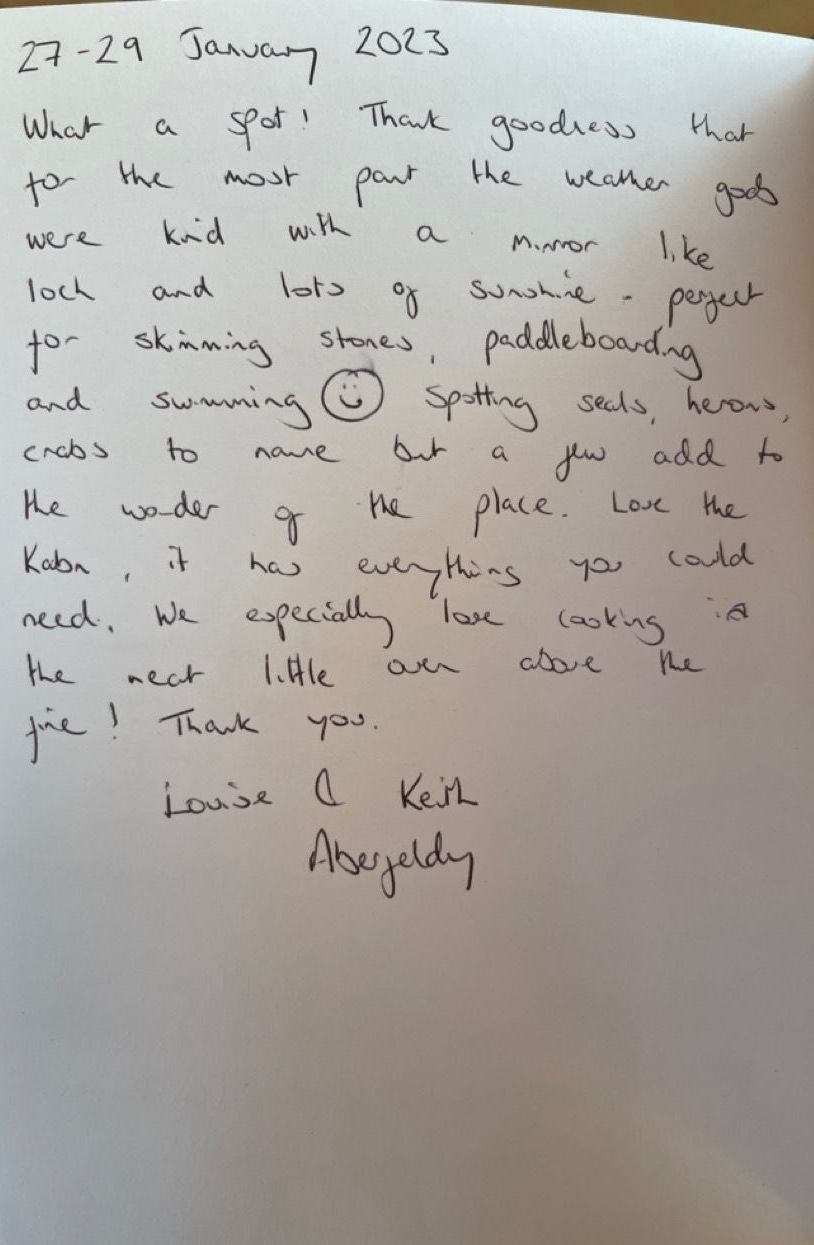 27-29 January 2023
What a spot! Thank goodness that
for the most part the weather gods
were kind with a mirror like
loch and lots of sunshine - perfect
for skimming stones, paddleboarding
and swimming ☺ Spotting seals, herons,
crabs to name but a few add to
the wonder of the place. Love the
Kabn, it has everything you could
need. We especially love cooking in
the neat little oven above the
fire! Thank you.
Louise & Keith
Aberfeldy